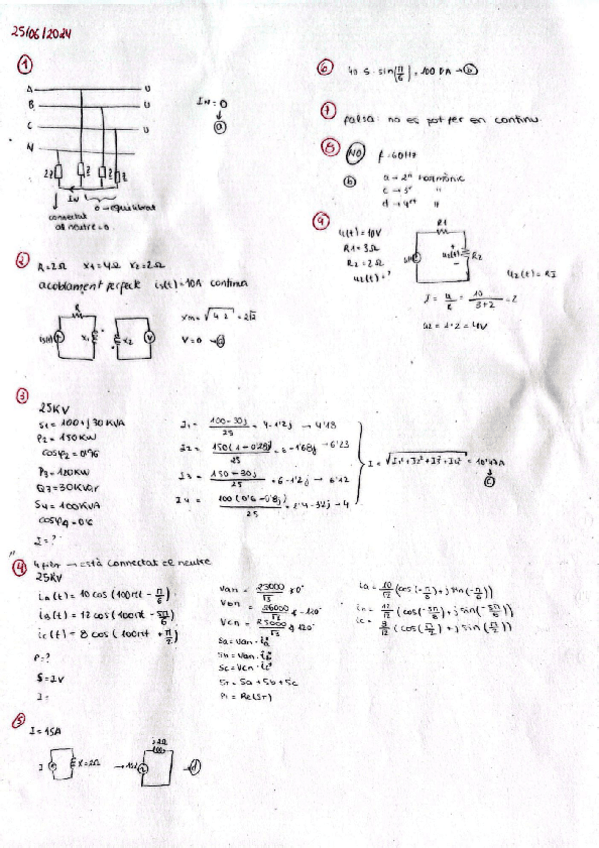 25/06/2024
①
A
B
C
N
U
U
U
IN = 0
ⓐ
2Z Z Z Z
IN
0 → equilibrat
connectat
al neutre = 0
②
R=2Ω X1=4Ω X2=2Ω
acoblament perfecte is(t)=10A continua
R
X1
X2
V
Xm = √4·2 = 2√2
V=0
③
25KV
S1=100+j30KVA
P2=150KW
cosφ2=0'96
P3=120KW
Q3=30KVar
S4=100KVA
cosφ4=0'6
I=?
I1= 100-30j / 25 = 4-1'2j → 4'18
→ 6'23
I3= 150-30j / 25 = 6-1'2j → 6'12
I4= 100(0'6-0'8j) / 25 = 2'4-3'2j → 4
ⓒ
④
està connectat al neutre
25KV
ia(t)=10cos(100πt-π/6)
ib(t)=12cos(100πt-5π/6)
ic(t)=8cos(100πt+π/2)
P=?
I=
Van= 25000/√3 ∡0°
Vbn= 25000/√3 ∡-120°
Vcn= 25000/√3 ∡120°
Sa=Van·ia*
Sb=Vbn·ib*
Sc=Vcn·ic*
ST=Sa+Sb+Sc
PT=Re(ST)
ia= 10/√2 (cos(-π/6)+jsin(-π/6))
12/√2 (cos(-5π/6)+jsin(-5π/6))
ic= 8/√2 (cos(π/2)+jsin(π/2))
⑤
I=15A
I
X=2Ω
j2Ω
ⓓ
⑥
sin(π/6) = 100 → ⓑ
⑦
Falsa: no es pot fer en continu
⑧
NO f=60Hz
ⓑ
a → 2n harmònic
c → 3r "
d → 4rt "
⑨
u(t)=10V
R1=3Ω
R2=2Ω
u2(t)=?
R1
u2(t)
R2
u2(t)=RI
I = u/R = 10/3+2 = 2
= 4V